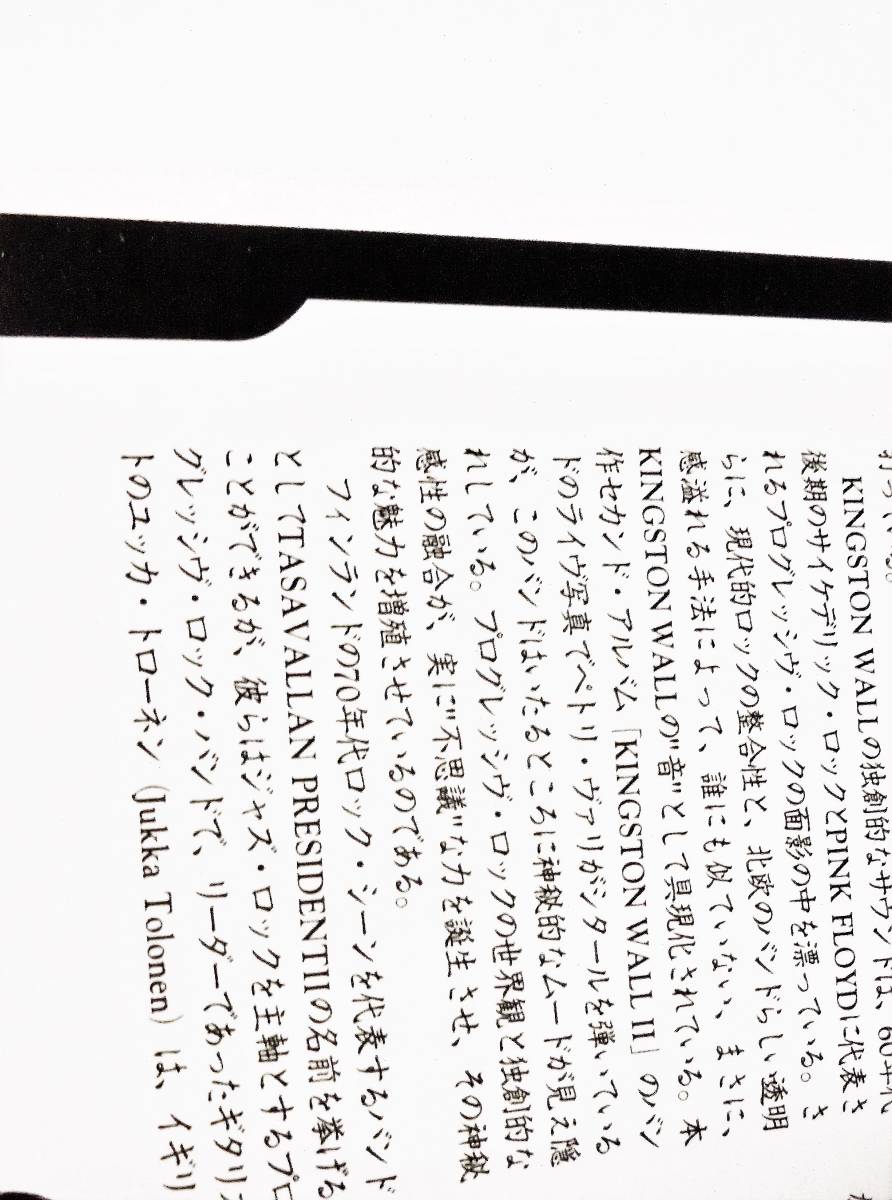 打っている。
KINGSTON WALLの独創的なサウンドは、60年代
後期のサイケデリック・ロックとPINK FLOYDに代表さ
れるプログレッシヴ・ロックの面影の中を漂っている。さ
らに、現代的ロックの整合性と、北欧のバンドらしい透明
感溢れる手法によって、誰にも似ていない、まさに、
KINGSTON WALLの"音"として具現化されている。本
作セカンド・アルバム「KINGSTON WALL II」のバン
ドのライヴ写真でペトリ・ヴァリがシタールを弾いている
が、このバンドはいたるところに神秘的なムードが見え隠
れしている。プログレッシヴ・ロックの世界観と独創的な
感性の融合が、実に"不思議"な力を誕生させ、その神秘
的な魅力を増殖させているのである。
フィンランドの70年代ロック・シーンを代表するバンド
としてTASAVALLAN PRESIDENTIIの名前を挙げる
ことができるが、彼らはジャズ・ロックを主軸とするプロ
グレッシヴ・ロック・バンドで、リーダーであったギタリス
トのユッカ・トローネン（Jukka Tolonen）は、イギリ